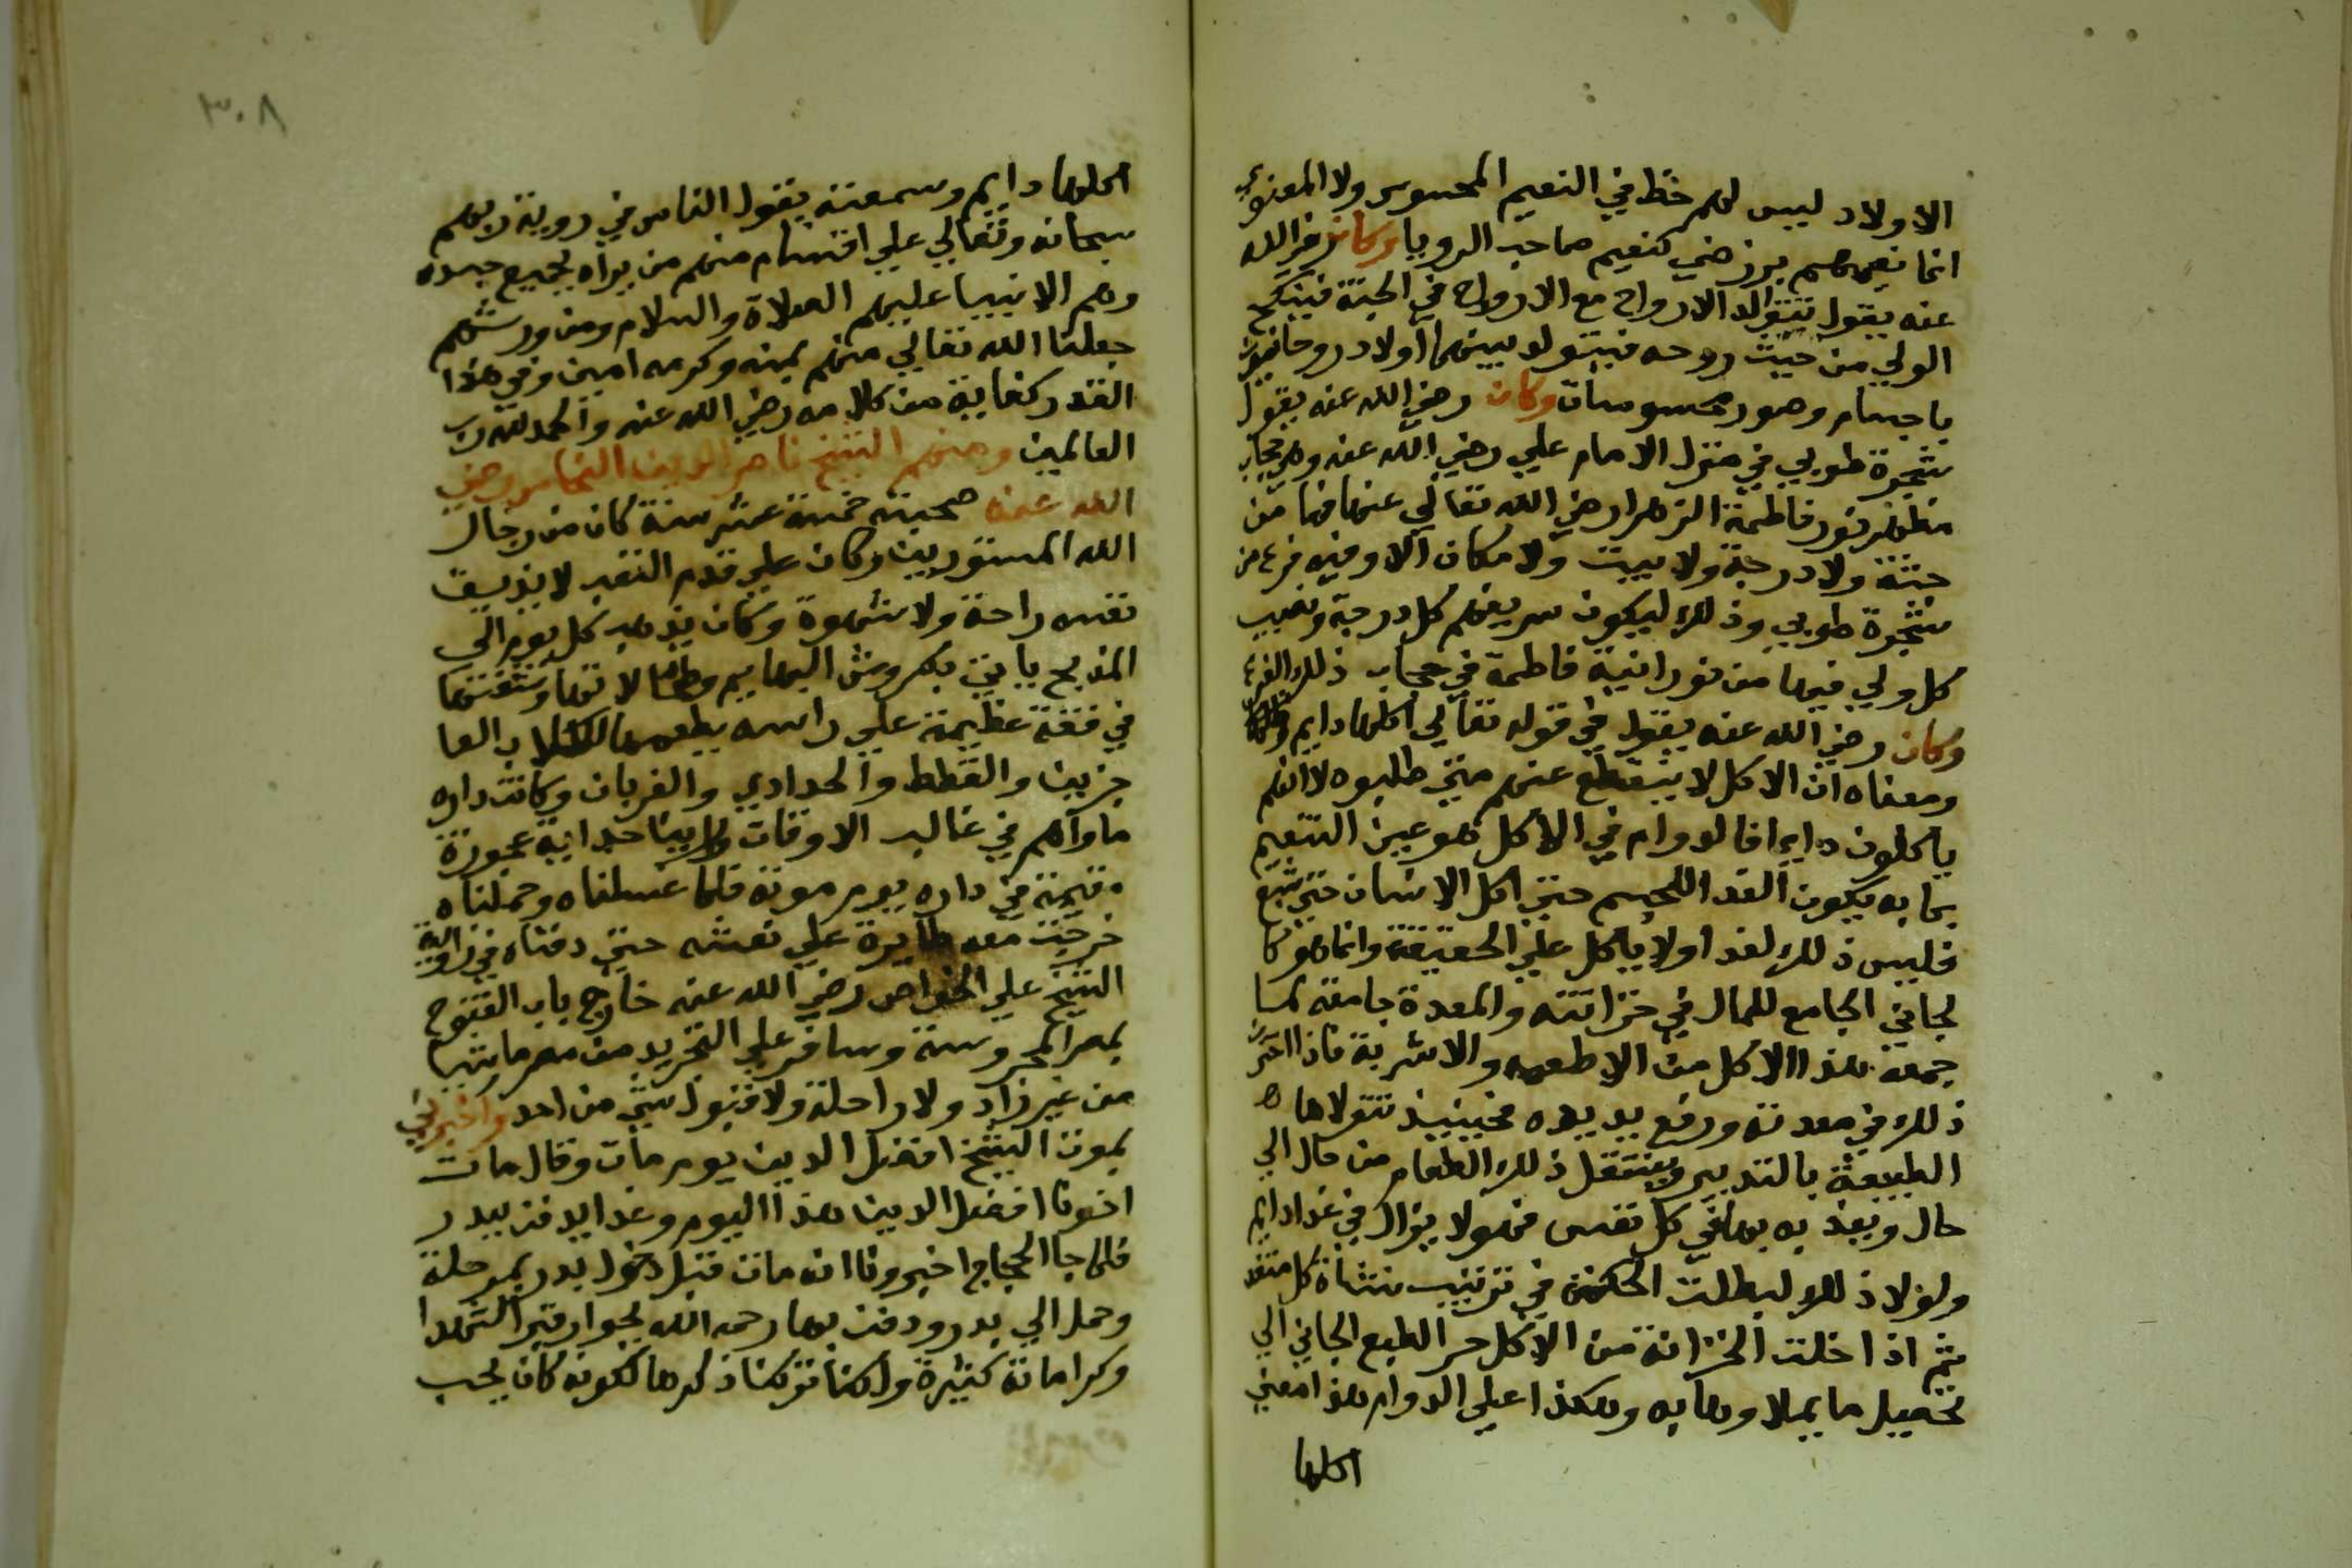 الاولاد ليس لهم حظ في النعيم المحسوس ولا المعنوي
انما نعيمهم برزخي كنعيم صاحب الرويا وكان رضي الله
عنه يقول تتوالد الارواح مع الارواح في الجنة فينكح
الولي من حيث روحه فيتولد بينهما اولاد روحانيون
باجسام وصور محسوسات وكان رضي الله عنه يقول
شجرة طوبي في منزل الامام علي رضي الله عنه وهي حجاب
مظهر نور فاطمة الزهرا رضي الله تعالي عنها فما من
جنة ولا درجة ولا بيت ولا مكان الا وفيه فرع من
شجرة طوبي وذلك ليكون سر يغم كل درجة ونصيب
كل ولي فيها من نورانية فاطمة في حجاب ذلك الفرع
وكان رضي الله عنه يقول في قوله تعالي اكلها دايم وظلها
ومعناه ان الاكل لا ينقطع عنهم متي طلبوه لا انهم
ياكلون دايما فالدوام في الاكل هو عين التنعيم
بما به يكون الغدا للجسم حتي اكل الانسان حتي شبع
فليس ذلك لغدا ولا ياكل علي الحقيقة وانما هو كا
لجاني الجامع للمال في خزانته والمعدة جامعة لما
جمعه هذا الاكل من الاطعمه والاشربة فاذا اختزن
ذلك في معدته ورفع يد يده فحينيذ تتولاها
الطبيعة بالتدبير وينتقل ذلك الطعام من حال الي
حال ويغذيه بها في كل نفس فهو لا يزال في غدا دايم
ولولا ذلك لبطلت الحكمة في ترتيب نشاة كل متغد
ثم اذا خلت الخزانة من الاكل حر الطبع الجاني الي
تحصيل ما يملاوها به وهكذا علي الدوام هذا معني
اكلها
٣٠٨
اكلها دايم وسمعته يقول الناس في روية ربهم
سبحانه وتعالي علي اقسام منهم من يراه بجميع جسده
وهم الانبيا عليهم الصلاة والسلام ومن ورثتهم
جعلنا الله تعالي منهم بمنه وكرمه امين وفي هذا
القدر كفاية من كلامه رضي الله عنه والحمد لله رب
العالمين ومنهم الشيخ ناصر الدين النحاس رضي
الله عنه صحبته خمسة عشر سنة كان من رجال
الله المستورين وكان علي قدم التعبد لا يذيق
نفسه راحة ولا شهوة وكان يذهب كل يوم الي
المذبح ياتي بكروش البهايم وطحالاتها وشغتها
في قفة عظيمة علي راسه يطعمها للكلاب العا
جزين والقطط والحدادي والغربان وكانت داره
ماواهم في غالب الاوقات وراينا حداية عجوزة
مقيمة في داره يوم موته فلما غسلناه وحملناه
خرجت معه طايرة علي نعشه حتي دفناه في زاوية
الشيخ علي الخواص رضي الله عنه خارج باب الفتوح
بمصر المحروسة وسافر علي التجريد من مصر ماشيا
من غير زاد ولا راحلة ولا قبول شي من احد واخبرني
بموت الشيخ افضل الدين يوم مات وقال مات
اخونا افضل الدين هذا اليوم وغدا يدفن ببدر
فلما جا الحجاج اخبرونا انه مات قبل دخول بدر بمرحلة
وحمل الي بدر ودفن بها رحمه الله بجوار قبر الشهدا
وكراماته كثيرة ولكنا تركنا ذكرها لكونه كان يحب